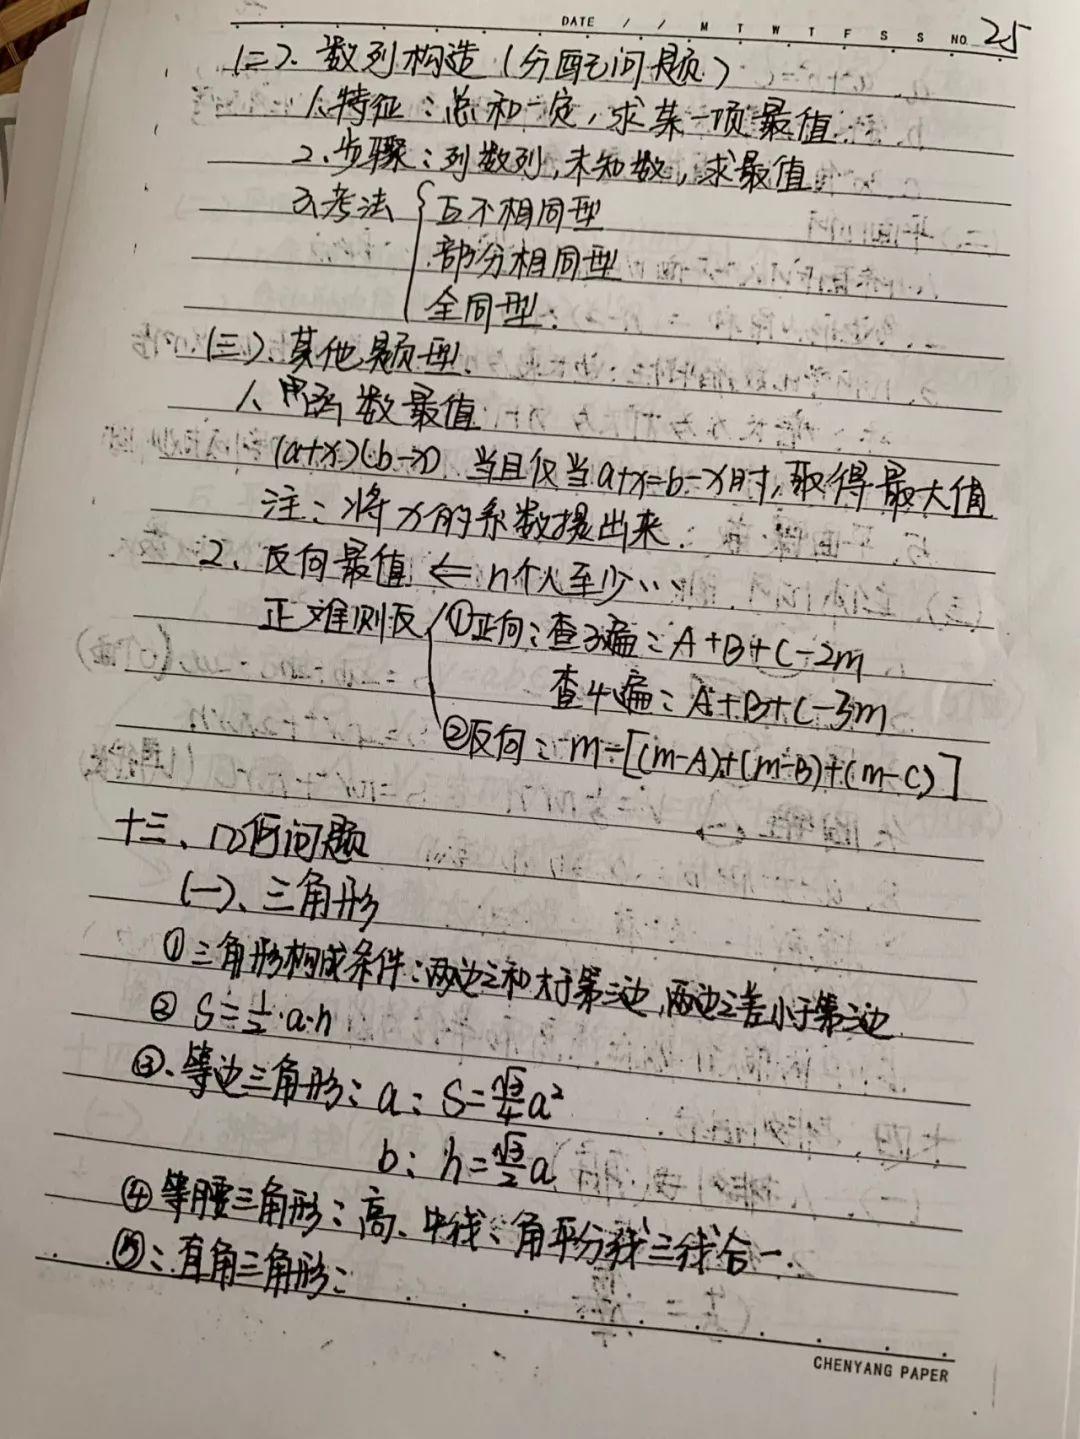 DATE / / M T W T F S S NO. 25
(二). 数列构造(分配问题)
1、特征：总和一定，求某一项最值
2、步骤：列数列，未知数，求最值
3、考法 { 互不相同型
部分相同型
全同型.
(三)、其他题型
1、函数最值
(a+x)(b-x) 当且仅当a+x=b-x时，取得最大值
注：将x的系数提出来.
2、反向最值 ⇐ n个人至少…
正难则反 { ①正向：查3遍：A+B+C-2m
查4遍：A+B+C-3m
②反向：m-[(m-A)+(m-B)+(m-C)]
十三、几何问题
(一)、三角形
①三角形构成条件：两边之和大于第三边，两边之差小于第三边
② S=½·a·h
③、等边三角形：a：S=√3/4 a²
b：h=√3/2 a
④等腰三角形：高、中线、角平分线三线合一.
⑤：直角三角形：
CHENYANG PAPER